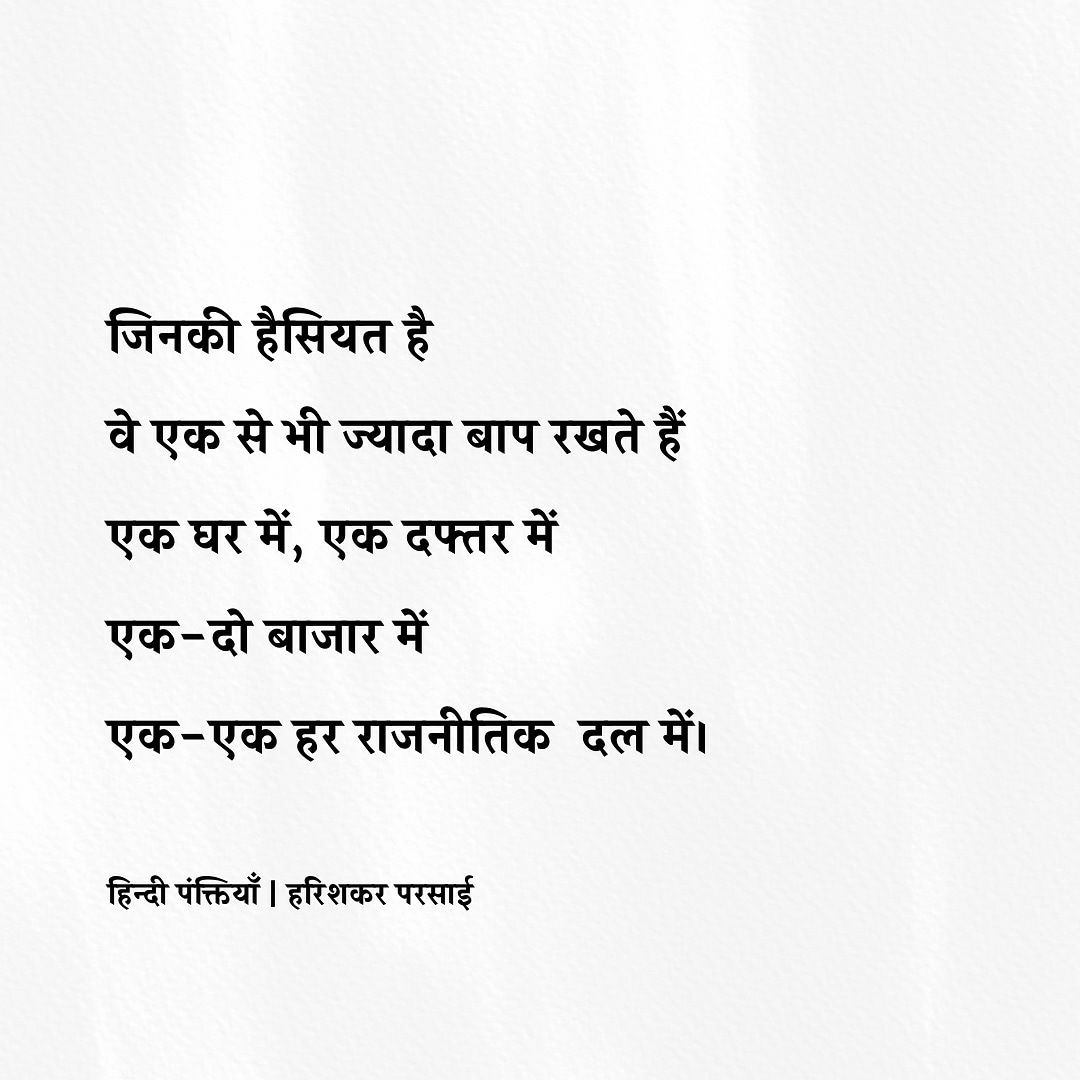 जिनकी हैसियत है
वे एक से भी ज्यादा बाप रखते हैं
एक घर में, एक दफ्तर में
एक-दो बाजार में
एक-एक हर राजनीतिक  दल में।
हिन्दी पंक्तियाँ | हरिशकर परसाई